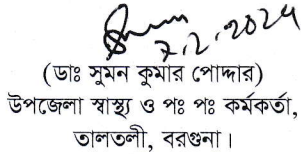 7.2.2024
(ডাঃ সুমন কুমার পোদ্দার)
উপজেলা স্বাস্থ্য ও পঃ পঃ কর্মকর্তা,
তালতলী, বরগুনা।